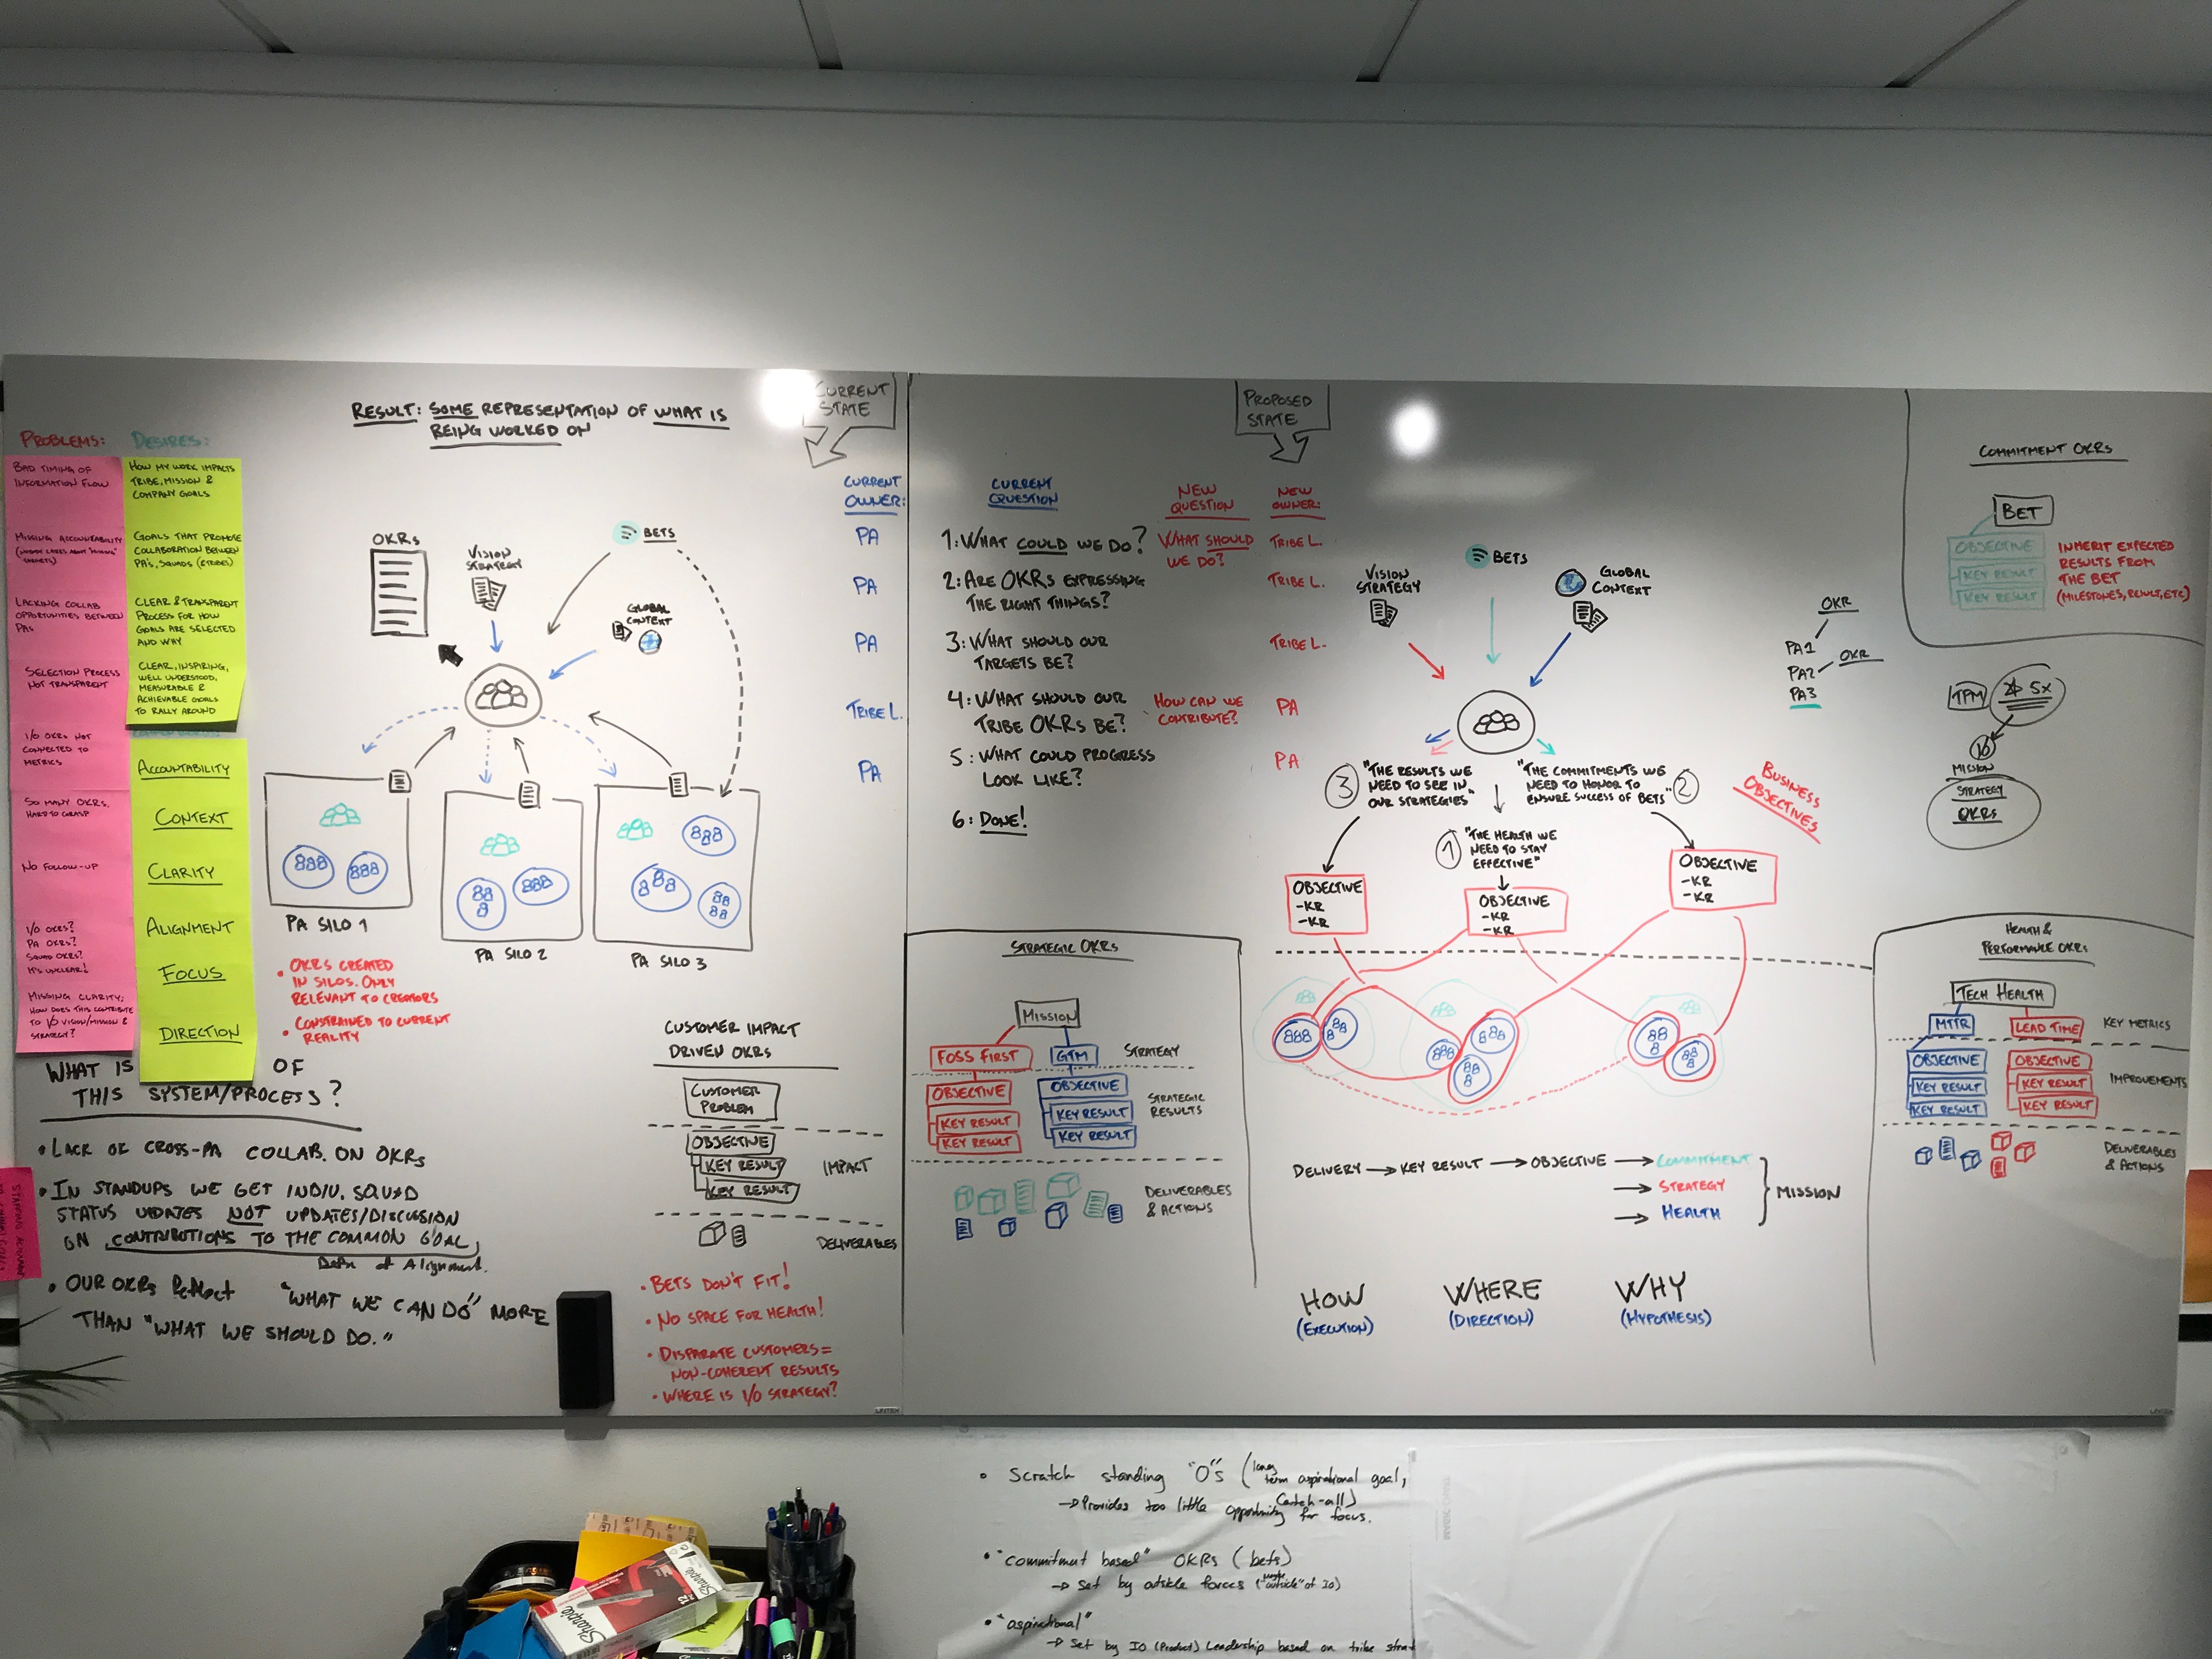 RESULT: SOME REPRESENTATION OF WHAT IS
BEING WORKED ON
CURRENT
STATE
PROBLEMS:
BAD TIMING OF
INFORMATION FLOW
MISSING ACCOUNTABILITY
LACKING COLLAB
OPORTUNITIES BETWEEN
PAs
SELECTION PROCESS
NOT TRANSPARENT
I/O OKRs NOT
CONNECTED TO
METRICS
SO MANY OKRs,
HARD TO GRASP
NO FOLLOW-UP
I/O OKRs?
PA OKRs?
SQUAD OKRs?
IT'S UNCLEAR!
MISSING CLARITY;
HOW DOES THIS CONTRIBUTE
TO I/O VISION/MISSION &
STRATEGY?
DESIRES:
HOW MY WORK IMPACTS
TRIBE, MISSION &
COMPANY GOALS
GOALS THAT PROMOTE
COLLABORATION BETWEEN
PA's, SQUADS (&TRIBES)
CLEAR & TRANSPARENT
PROCESS FOR HOW
GOALS ARE SELECTED
AND WHY
CLEAR, INSPIRING,
WELL UNDERSTOOD,
MEASURABLE &
ACHIEVABLE GOALS
TO RALLY AROUND
ACCOUNTABILITY
CONTEXT
CLARITY
ALIGNMENT
FOCUS
DIRECTION
OKRs
VISION
STRATEGY
BETS
GLOBAL
CONTEXT
PA SILO 1
PA SILO 2
PA SILO 3
• OKRs CREATED
IN SILOS. ONLY
RELEVANT TO CREATORS
• CONSTRAINED TO CURRENT
REALITY
WHAT IS OF
THIS SYSTEM/PROCESS?
• LACK OF CROSS-PA COLLAB. ON OKRs
• IN STANDUPS WE GET INDIV. SQUAD
STATUS UPDATES NOT UPDATES/DISCUSSION
ON CONTRIBUTIONS TO THE COMMON GOAL
of Alignment.
• OUR OKRs Reflect "WHAT WE CAN DO" MORE
THAN "WHAT WE SHOULD DO."
CUSTOMER IMPACT
DRIVEN OKRs
CUSTOMER
PROBLEM
OBJECTIVE
KEY RESULT
KEY RESULT
IMPACT
DELIVERABLES
• BETS DON'T FIT!
• NO SPACE FOR HEALTH!
• DISPARATE CUSTOMERS =
NON-COHERENT RESULTS
• WHERE IS I/O STRATEGY?
CURRENT
OWNER:
PA
PA
PA
TRIBE L.
PA
PROPOSED
STATE
CURRENT
QUESTION
NEW
QUESTION
NEW
OWNER:
1: WHAT COULD WE DO?
WHAT SHOULD
WE DO?
TRIBE L.
2: ARE OKRs EXPRESSING
THE RIGHT THINGS?
TRIBE L.
3: WHAT SHOULD OUR
TARGETS BE?
TRIBE L.
4: WHAT SHOULD OUR
TRIBE OKRs BE?
HOW CAN WE
CONTRIBUTE?
PA
5: WHAT COULD PROGRESS
LOOK LIKE?
PA
6: DONE!
STRATEGIC OKRs
MISSION
FOSS FIRST
GTM
STRATEGY
OBJECTIVE
KEY RESULT
KEY RESULT
OBJECTIVE
KEY RESULT
KEY RESULT
STRATEGIC
RESULTS
DELIVERABLES
& ACTIONS
VISION
STRATEGY
BETS
GLOBAL
CONTEXT
3
"THE RESULTS WE
NEED TO SEE IN
OUR STRATEGIES"
"THE COMMITMENTS WE
NEED TO HONOR TO
ENSURE SUCCESS OF BETS"
2
1
"THE HEALTH WE
NEED TO STAY
EFFECTIVE"
BUSINESS
OBJECTIVES
OBJECTIVE
-KR
-KR
OBJECTIVE
-KR
-KR
OBJECTIVE
-KR
-KR
DELIVERY → KEY RESULT → OBJECTIVE → COMMITMENT
→ STRATEGY
→ HEALTH
MISSION
HOW
(EXECUTION)
WHERE
(DIRECTION)
WHY
(HYPOTHESIS)
OKR
PA1
PA2
OKR
PA3
COMMITMENT OKRs
BET
OBJECTIVE
KEY RESULT
KEY RESULT
INHERIT EXPECTED
RESULTS FROM
THE BET
(MILESTONES, RESULT, ETC)
TPM
5x
10
MISSION
STRATEGY
OKRs
HEALTH &
PERFORMANCE OKRs
TECH HEALTH
MTTR
LEAD TIME
KEY METRICS
OBJECTIVE
KEY RESULT
KEY RESULT
OBJECTIVE
KEY RESULT
KEY RESULT
IMPROVEMENTS
DELIVERABLES
& ACTIONS
• Scratch standing "O's" (long
term aspirational goal,
Catch-all)
→ Provides too little opportunity for focus.
• "commitment based" OKRs (bets)
→ Set by outside forces (maybe "outside" of IO)
• "aspirational"
→ Set by IO (Product) Leadership based on tribe strat
Sharpie
Sharpie